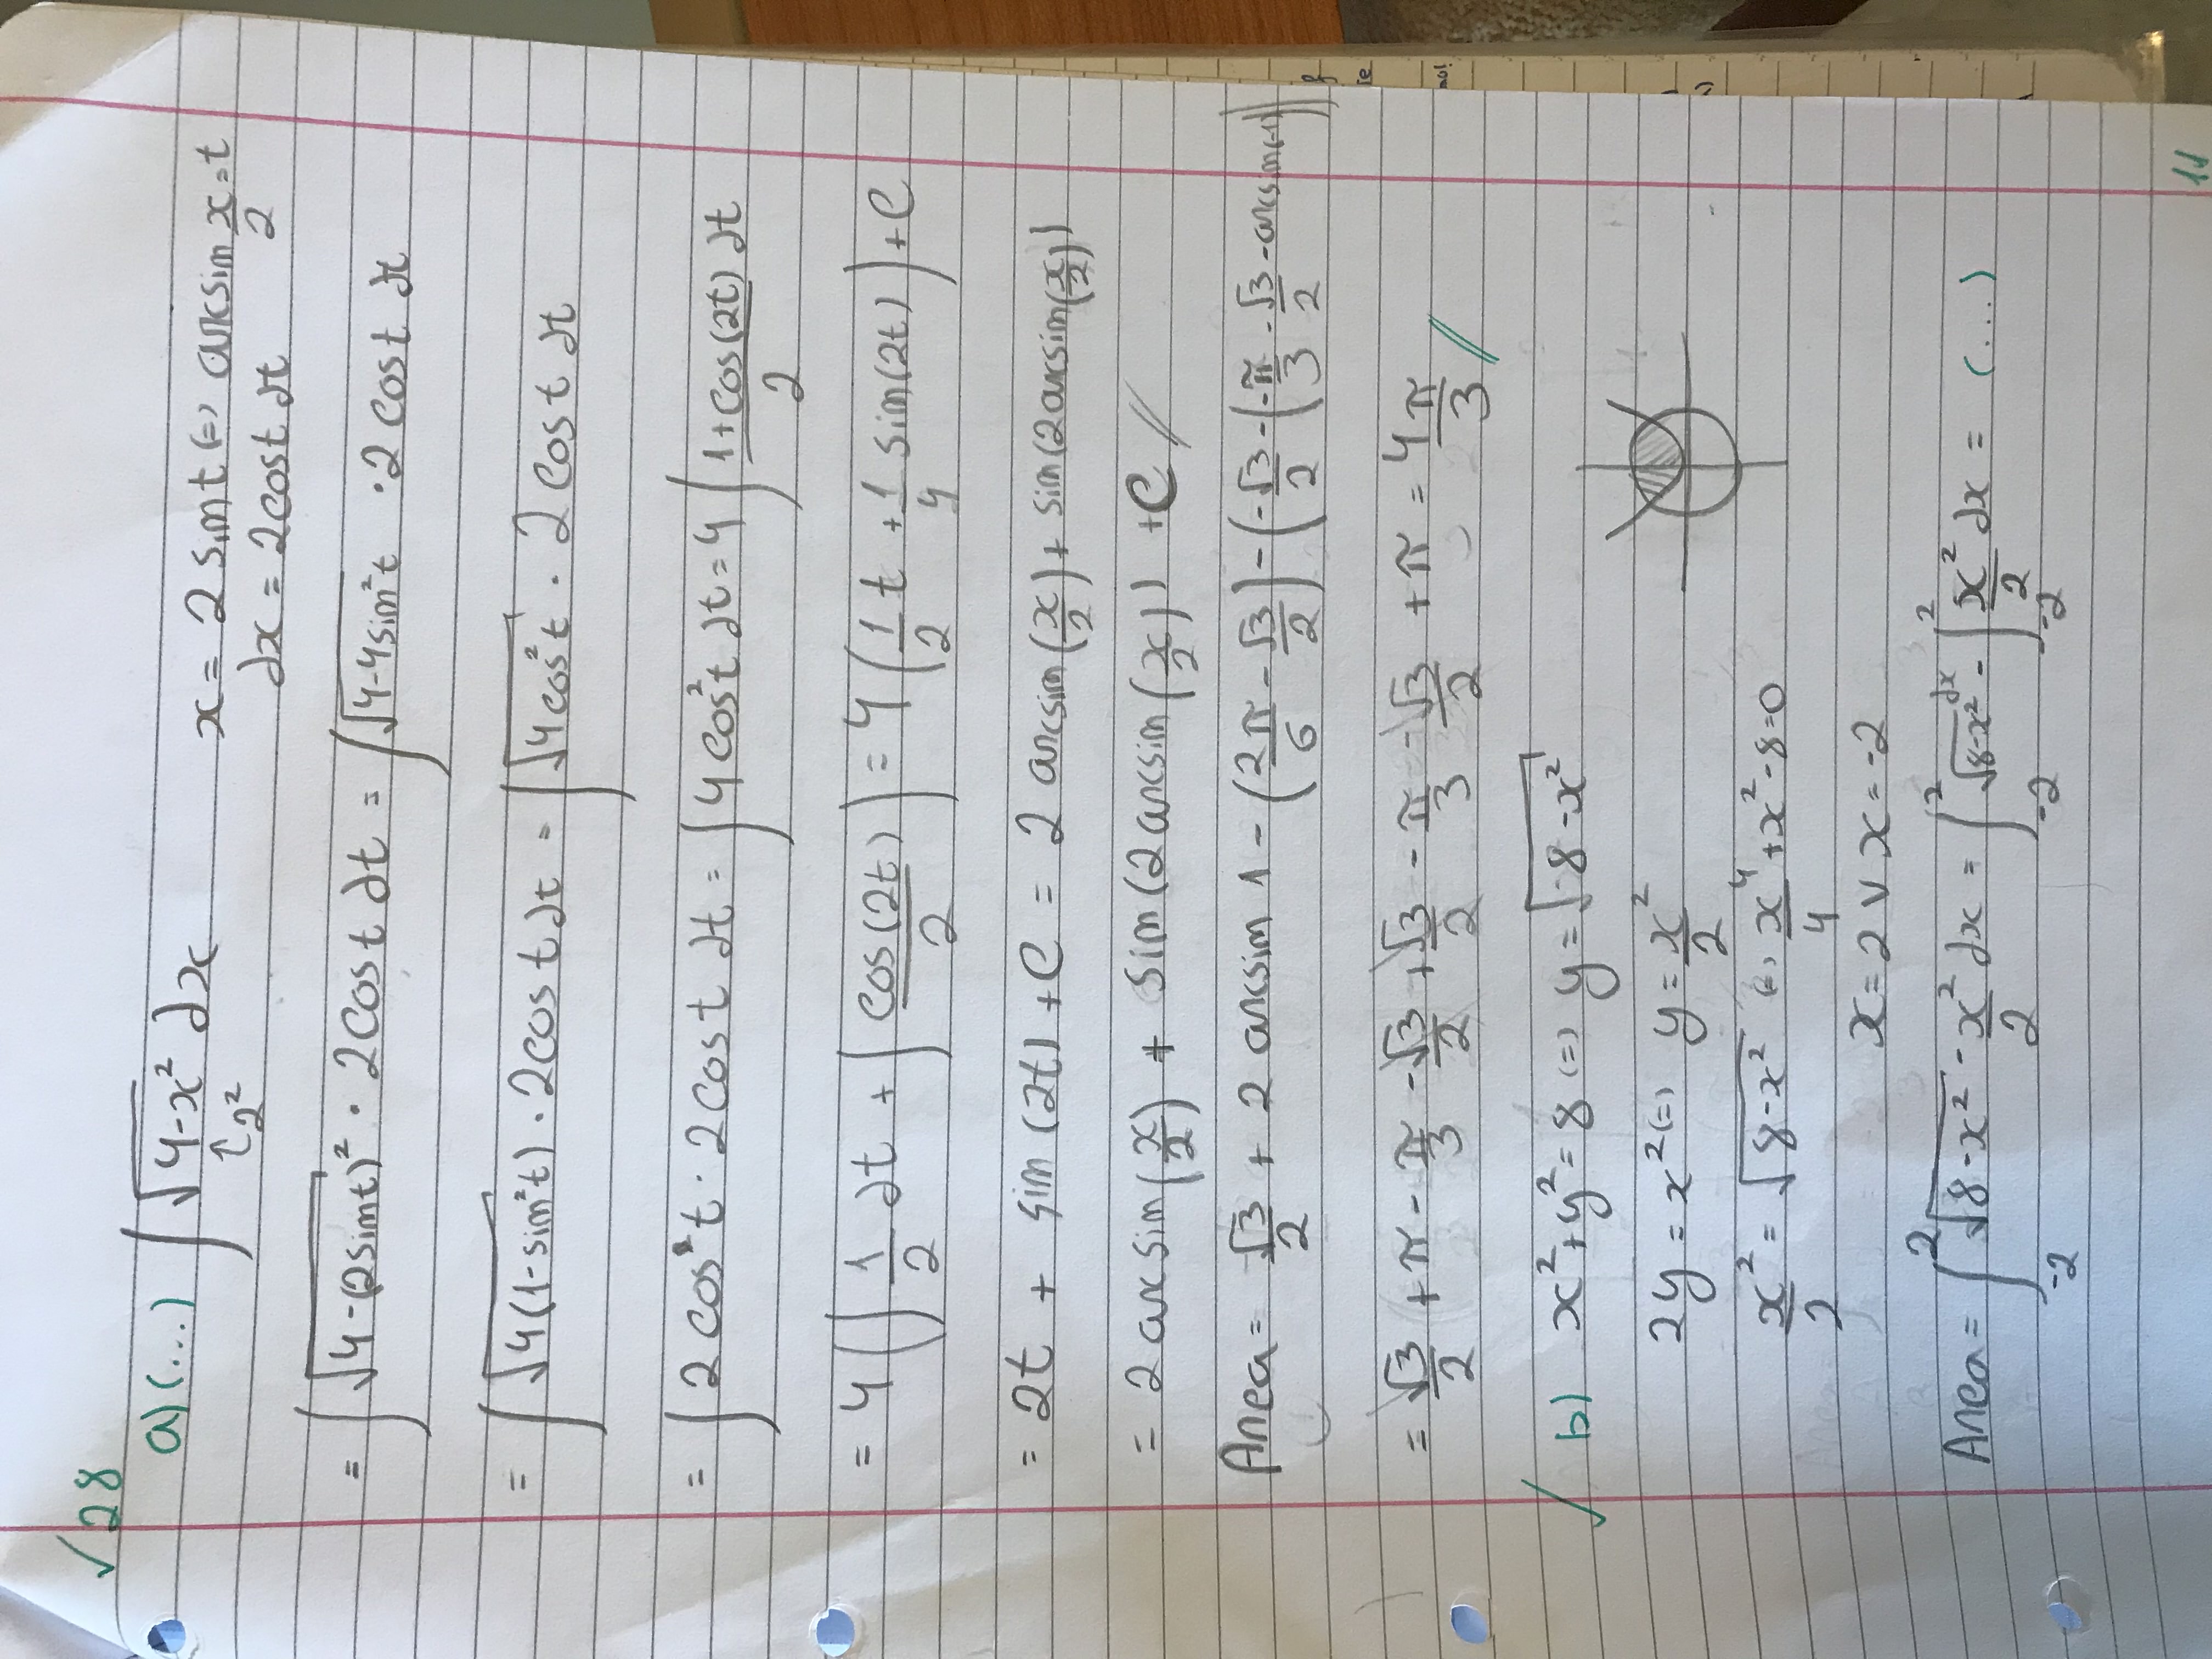 √28
a) (...) ∫ √(4-x²) dx      x = 2 sin t (=) arcsin x/2 = t
↑ 2²      dx = 2 cos t dt
= ∫ √(4-(2 sin t)²) · 2 cos t dt = ∫ √(4-4 sin²t) · 2 cos t dt
= ∫ √(4(1-sin²t)) · 2 cos t dt = ∫ √(4 cos²t) · 2 cos t dt
= ∫ 2 cos t · 2 cos t dt = ∫ 4 cos²t dt = 4 ∫ (1+cos(2t))/2 dt
= 4 ( ∫ 1/2 dt + ∫ cos(2t)/2 ) = 4 ( 1/2 t + 1/4 sin(2t) ) + C
= 2t + sin(2t) + C = 2 arcsin(x/2) + sin(2 arcsin(x/2))
= 2 arcsin(x/2) + sin(2 arcsin(x/2)) + C //
Area = √3/2 + 2 arcsin 1 - (2π/6 - √3/2) - (-√3/2 - (-π/3 - √3/2 - arcsin(-1)))
= √3/2 + π - π/3 - √3/2 + √3/2 - π/3 - √3/2 + π = 4π/3 //
✓ b) x² + y² = 8 (=) y = √(8-x²)
2y = x² (=) y = x²/2
x²/2 = √(8-x²) (=) x⁴/4 + x² - 8 = 0
x = 2 ∨ x = -2
Area = ∫_{-2}^{2} √(8-x²) - x²/2 dx = ∫_{-2}^{2} √(8-x²) dx - ∫_{-2}^{2} x²/2 dx = (...)
11